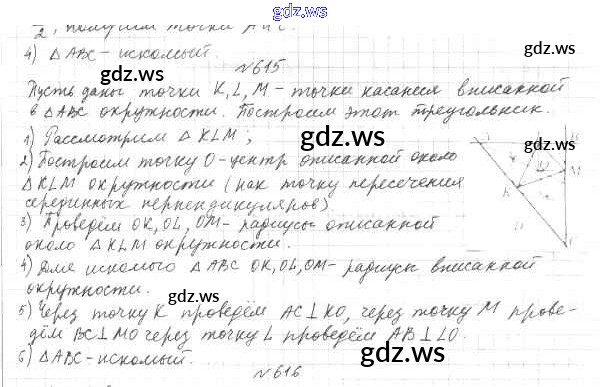 gdz.ws
2, получим точки A и C.
4) △ABC - искомый.
gdz.ws
gdz.ws
№615
Пусть даны точки K, L, M - точки касания вписанной
в △ABC окружности. Построим этот треугольник.
1) Рассмотрим △KLM;
gdz.ws
gdz.ws
2) Построим точку O - центр описанной около
△KLM окружности (как точку пересечения
серединных перпендикуляров)
K
M
3) Проведём OK, OL, OM - радиусы описанной
около △KLM окружности.
gdz.ws
4) Для искомого △ABC OK, OL, OM - радиусы вписанной
окружности.
gdz.ws
gdz.ws
5) Через точку K проведём AC⊥KO, через точку M прове-
дём BC⊥MO через точку L проведём AB⊥LO.
6) △ABC - искомый.
gdz.ws
gdz.ws
№616